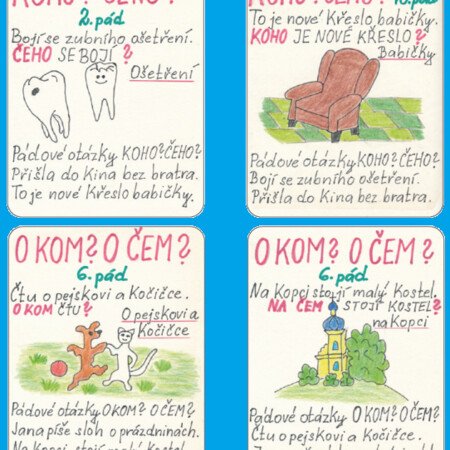 KOHO? ČEHO?
2. pád
Bojí se zubního ošetření.
ČEHO SE BOJÍ?
Ošetření
Pádové otázky KOHO? ČEHO?
Přišla do Kina bez bratra.
To je nové Křeslo babičky.
KOHO? ČEHO?
pád
To je nové Křeslo babičky.
KOHO JE NOVÉ KŘESLO?
Babičky
Pádové otázky KOHO? ČEHO?
Bojí se zubního ošetření.
Přišla do Kina bez bratra.
O KOM? O ČEM?
6. pád
Čtu o pejskovi a Kočičce.
O KOM ČTU?
O pejskovi a
Kočičce
Pádové otázky O KOM? O ČEM?
Jana píše sloh o prázdninách.
Na Kopci stojí malý Kostel.
O KOM? O ČEM?
6. pád
Na Kopci stojí malý Kostel.
NA ČEM STOJÍ KOSTEL?
na Kopci
Pádové otázky O KOM? O ČEM?
Čtu o pejskovi a Kočičce.